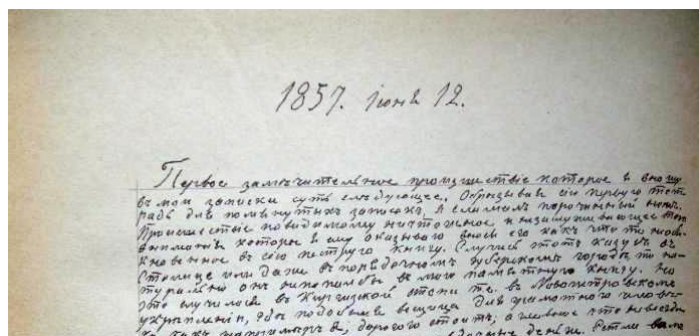 1857. Іюня 12.
Первое замѣчательное произшествіе которое я вношу
въ мои записки суть слѣдующее. Обрѣзывая сію первую тет
радь для помянутыхъ записокъ, я сломалъ перочинный ножъ.
Происшествіе повидимому ничтожное, и незаслуживающее того
вниманія которое я ему оказываю внося его какъ что то необы
кновенное въ сію пеструю книгу. Случись этотъ казусъ въ
столицѣ или даже въ порядочномъ губернскомъ городѣ то на
турально онъ непопалбы въ мою памятную книгу. Но
это случилось въ Киргизской степи т е. въ Новопетровскомъ
укрѣпленіи, гдѣ подобная вещица для грамотного человѣ
ка какъ напримѣръ я, дорого стоитъ, а главное что невсегда